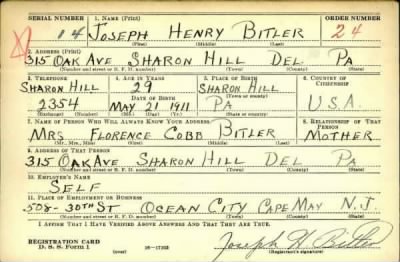 SERIAL NUMBER 1. NAME (Print) ORDER NUMBER
14 JOSEPH HENRY BITLER 24
(First) (Middle) (Last)
2. ADDRESS (Print)
315 OAK AVE SHARON HILL DEL PA
(Number and street or R. F. D. number) (Town) (County) (State)
3. TELEPHONE 4. AGE IN YEARS 5. PLACE OF BIRTH 6. COUNTRY OF CITIZENSHIP
SHARON HILL 29 SHARON HILL
DATE OF BIRTH (Town or county)
2354 MAY 21 1911 PA U.S.A.
(Exchange) (Number) (Mo.) (Day) (Yr.) (State or country)
7. NAME OF PERSON WHO WILL ALWAYS KNOW YOUR ADDRESS 8. RELATIONSHIP OF THAT PERSON
MRS FLORENCE COBB BITLER MOTHER
(Mr., Mrs., Miss) (First) (Middle) (Last)
9. ADDRESS OF THAT PERSON
315 OAK AVE SHARON HILL DEL PA
(Number and street or R. F. D. number) (Town) (County) (State)
10. EMPLOYER'S NAME
SELF
11. PLACE OF EMPLOYMENT OR BUSINESS
508-30TH ST OCEAN CITY CAPE MAY N.J.
(Number and street or R. F. D. number) (Town) (County) (State)
I AFFIRM THAT I HAVE VERIFIED ABOVE ANSWERS AND THAT THEY ARE TRUE.
REGISTRATION CARD
D. S. S. Form 1 (over) 16—17105 Joseph H Bitler
(Registrant's signature)